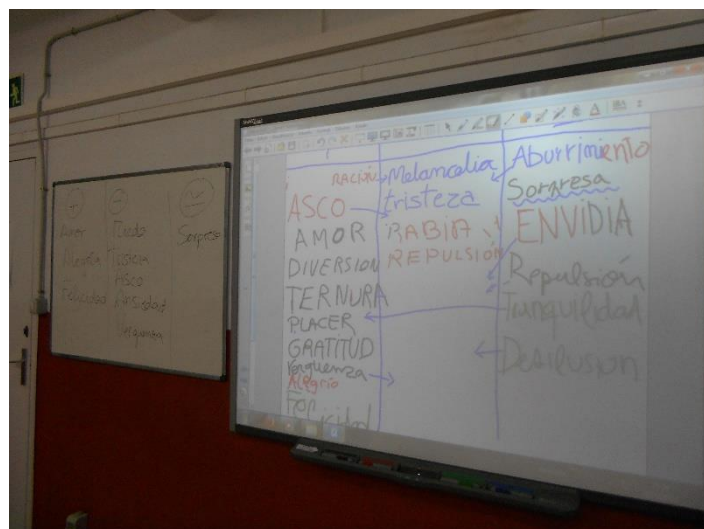 Amor
Alegría
Felicidad
Miedo
Tristeza
Asco
Ansiedad
Vergüenza
Sorpresa
RACIÓN
ASCO
AMOR
DIVERSION
TERNURA
PLACER
GRATITUD
Vergüenza
Alegria
Melancolia
tristeza
RABIA
REPULSIÓN
Aburrimiento
Sorpresa
ENVIDIA
Repulsión
Tranquilidad
Desilusion